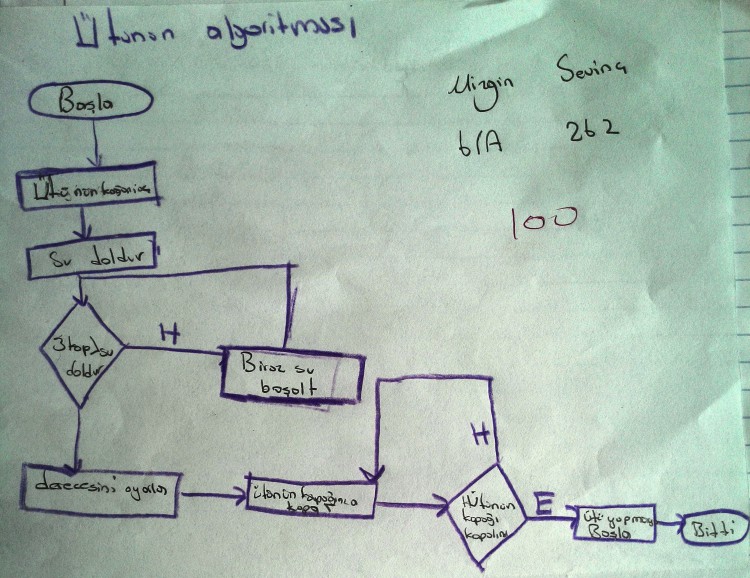 Ütünün algoritması
Mizgin Sevinç
6/A 262
100
Başla
Su doldur
su
doldur
H
Biraz su
boşalt
derecesini ayarla
ütünün kapağını
kapa
H
ütünün
kapağı
kapalımı
E
ütü yapmaya
Başla
Bitti